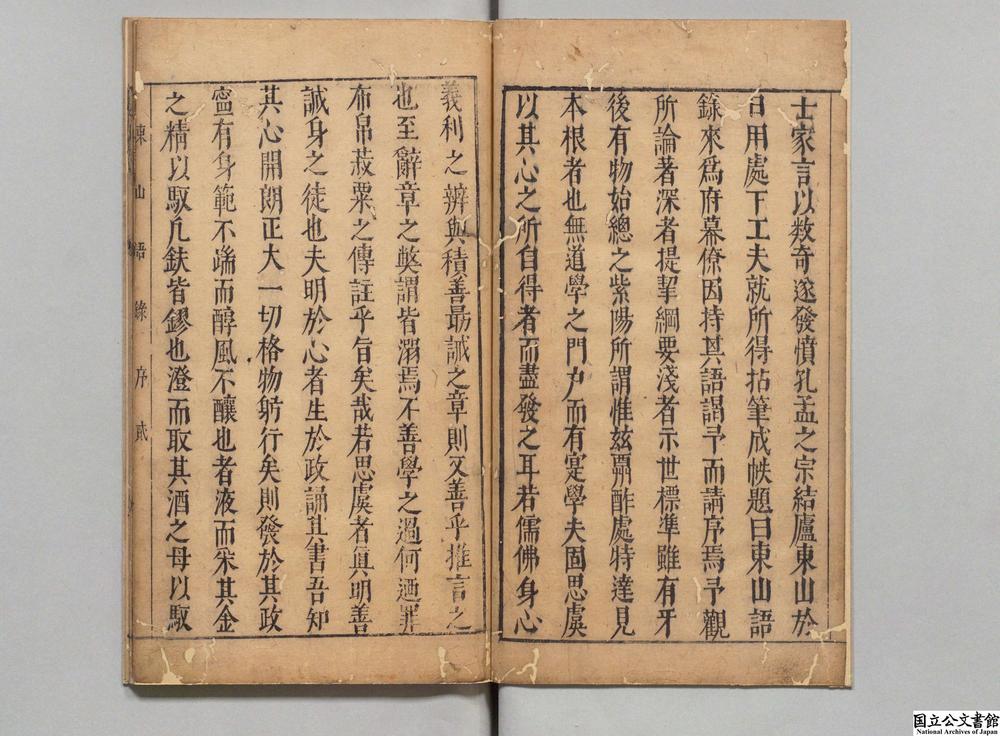 士家言以数奇遂發憤孔孟之宗結廬東山於
日用處下工夫就所得拈筆成帙題曰東山語
錄來爲府幕僚因持其語謁予而請序焉予觀
所論著深者提挈綱要淺者示世標準雖有牙
後有物始總之紫陽所謂惟玆鬲酢處特達見
本根者也無道學之門户而有寔學夫固思虞
以其心之所自得者而盡發之耳若儒佛身心
義利之辨與積善最誠之章則又善乎推言之
也至辭章之獘謂皆溺焉不善學之過何迺罪
布帛菽粟之傳註乎旨矣哉若思虞者眞明善
誠身之徒也夫明於心者生於政誦其書吾知
其心開朗正大一切格物躬行矣則發於其政
寍有身範不端而醇風不釀也者液而采其金
之精以馭凡鈇皆鏐也澄而取其酒之母以馭
東山語錄 序 貳
国立公文書館
National Archives of Japan